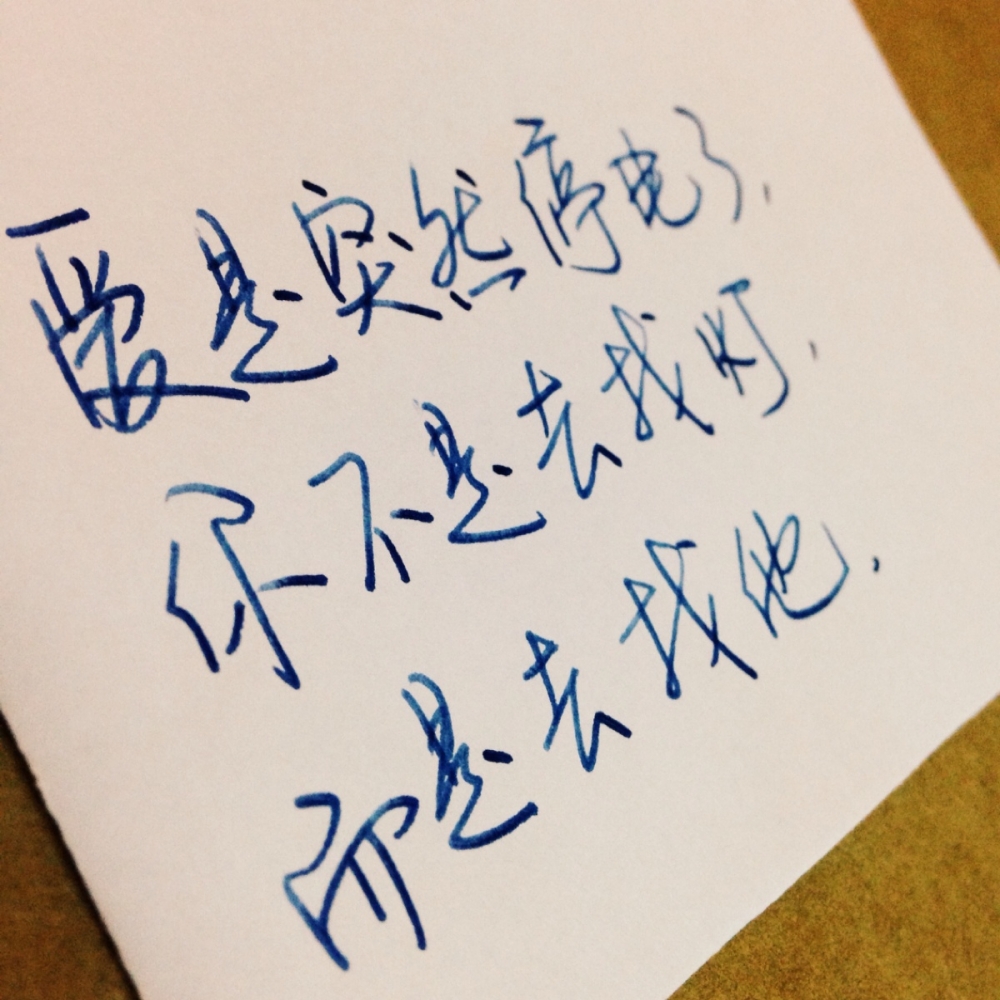 要是突然停电了.
你不是去找灯.
而是去找他.